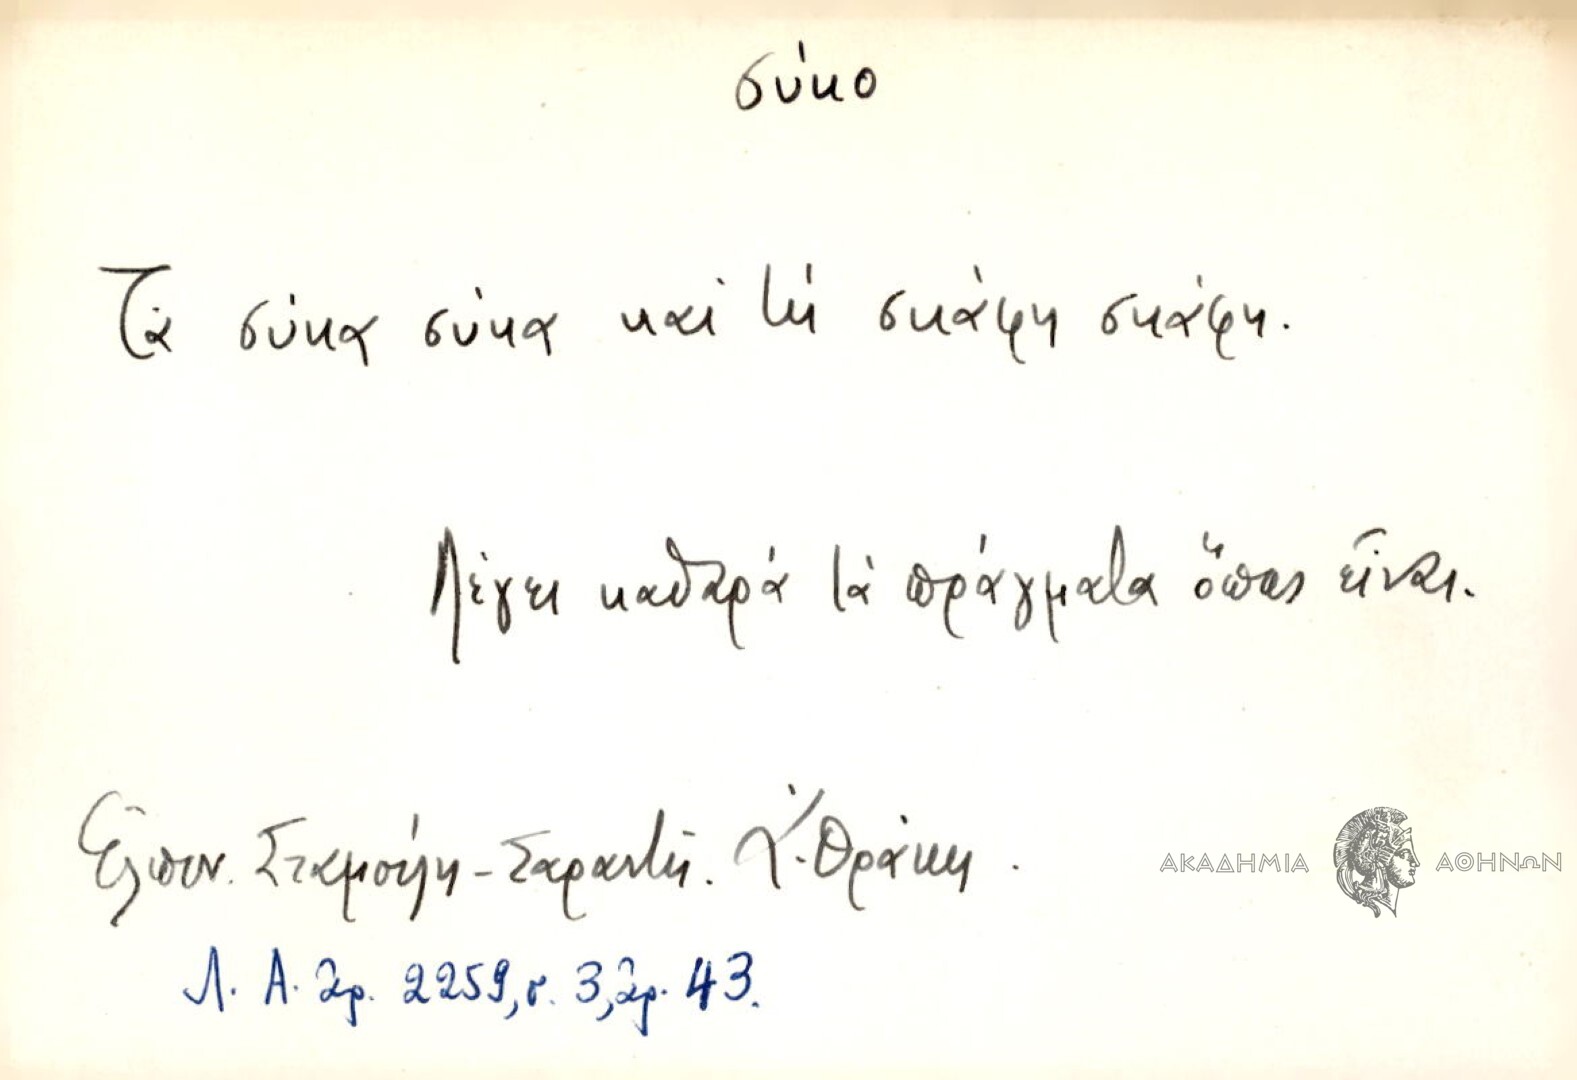 σύκο
Τά σύκα σύκα καί τή σκάφη σκάφη.
Λέγει καθαρά τά πράγματα ὅπως εἶναι.
Ἐλπιν. Σταμούλη - Σαραντῆ. Ἀ. Θράκη.
Λ. Α. ἀρ. 2259, σ. 3, ἀρ. 43.
ΑΚΑΔΗΜΙΑ ΑΘΗΝΩΝ